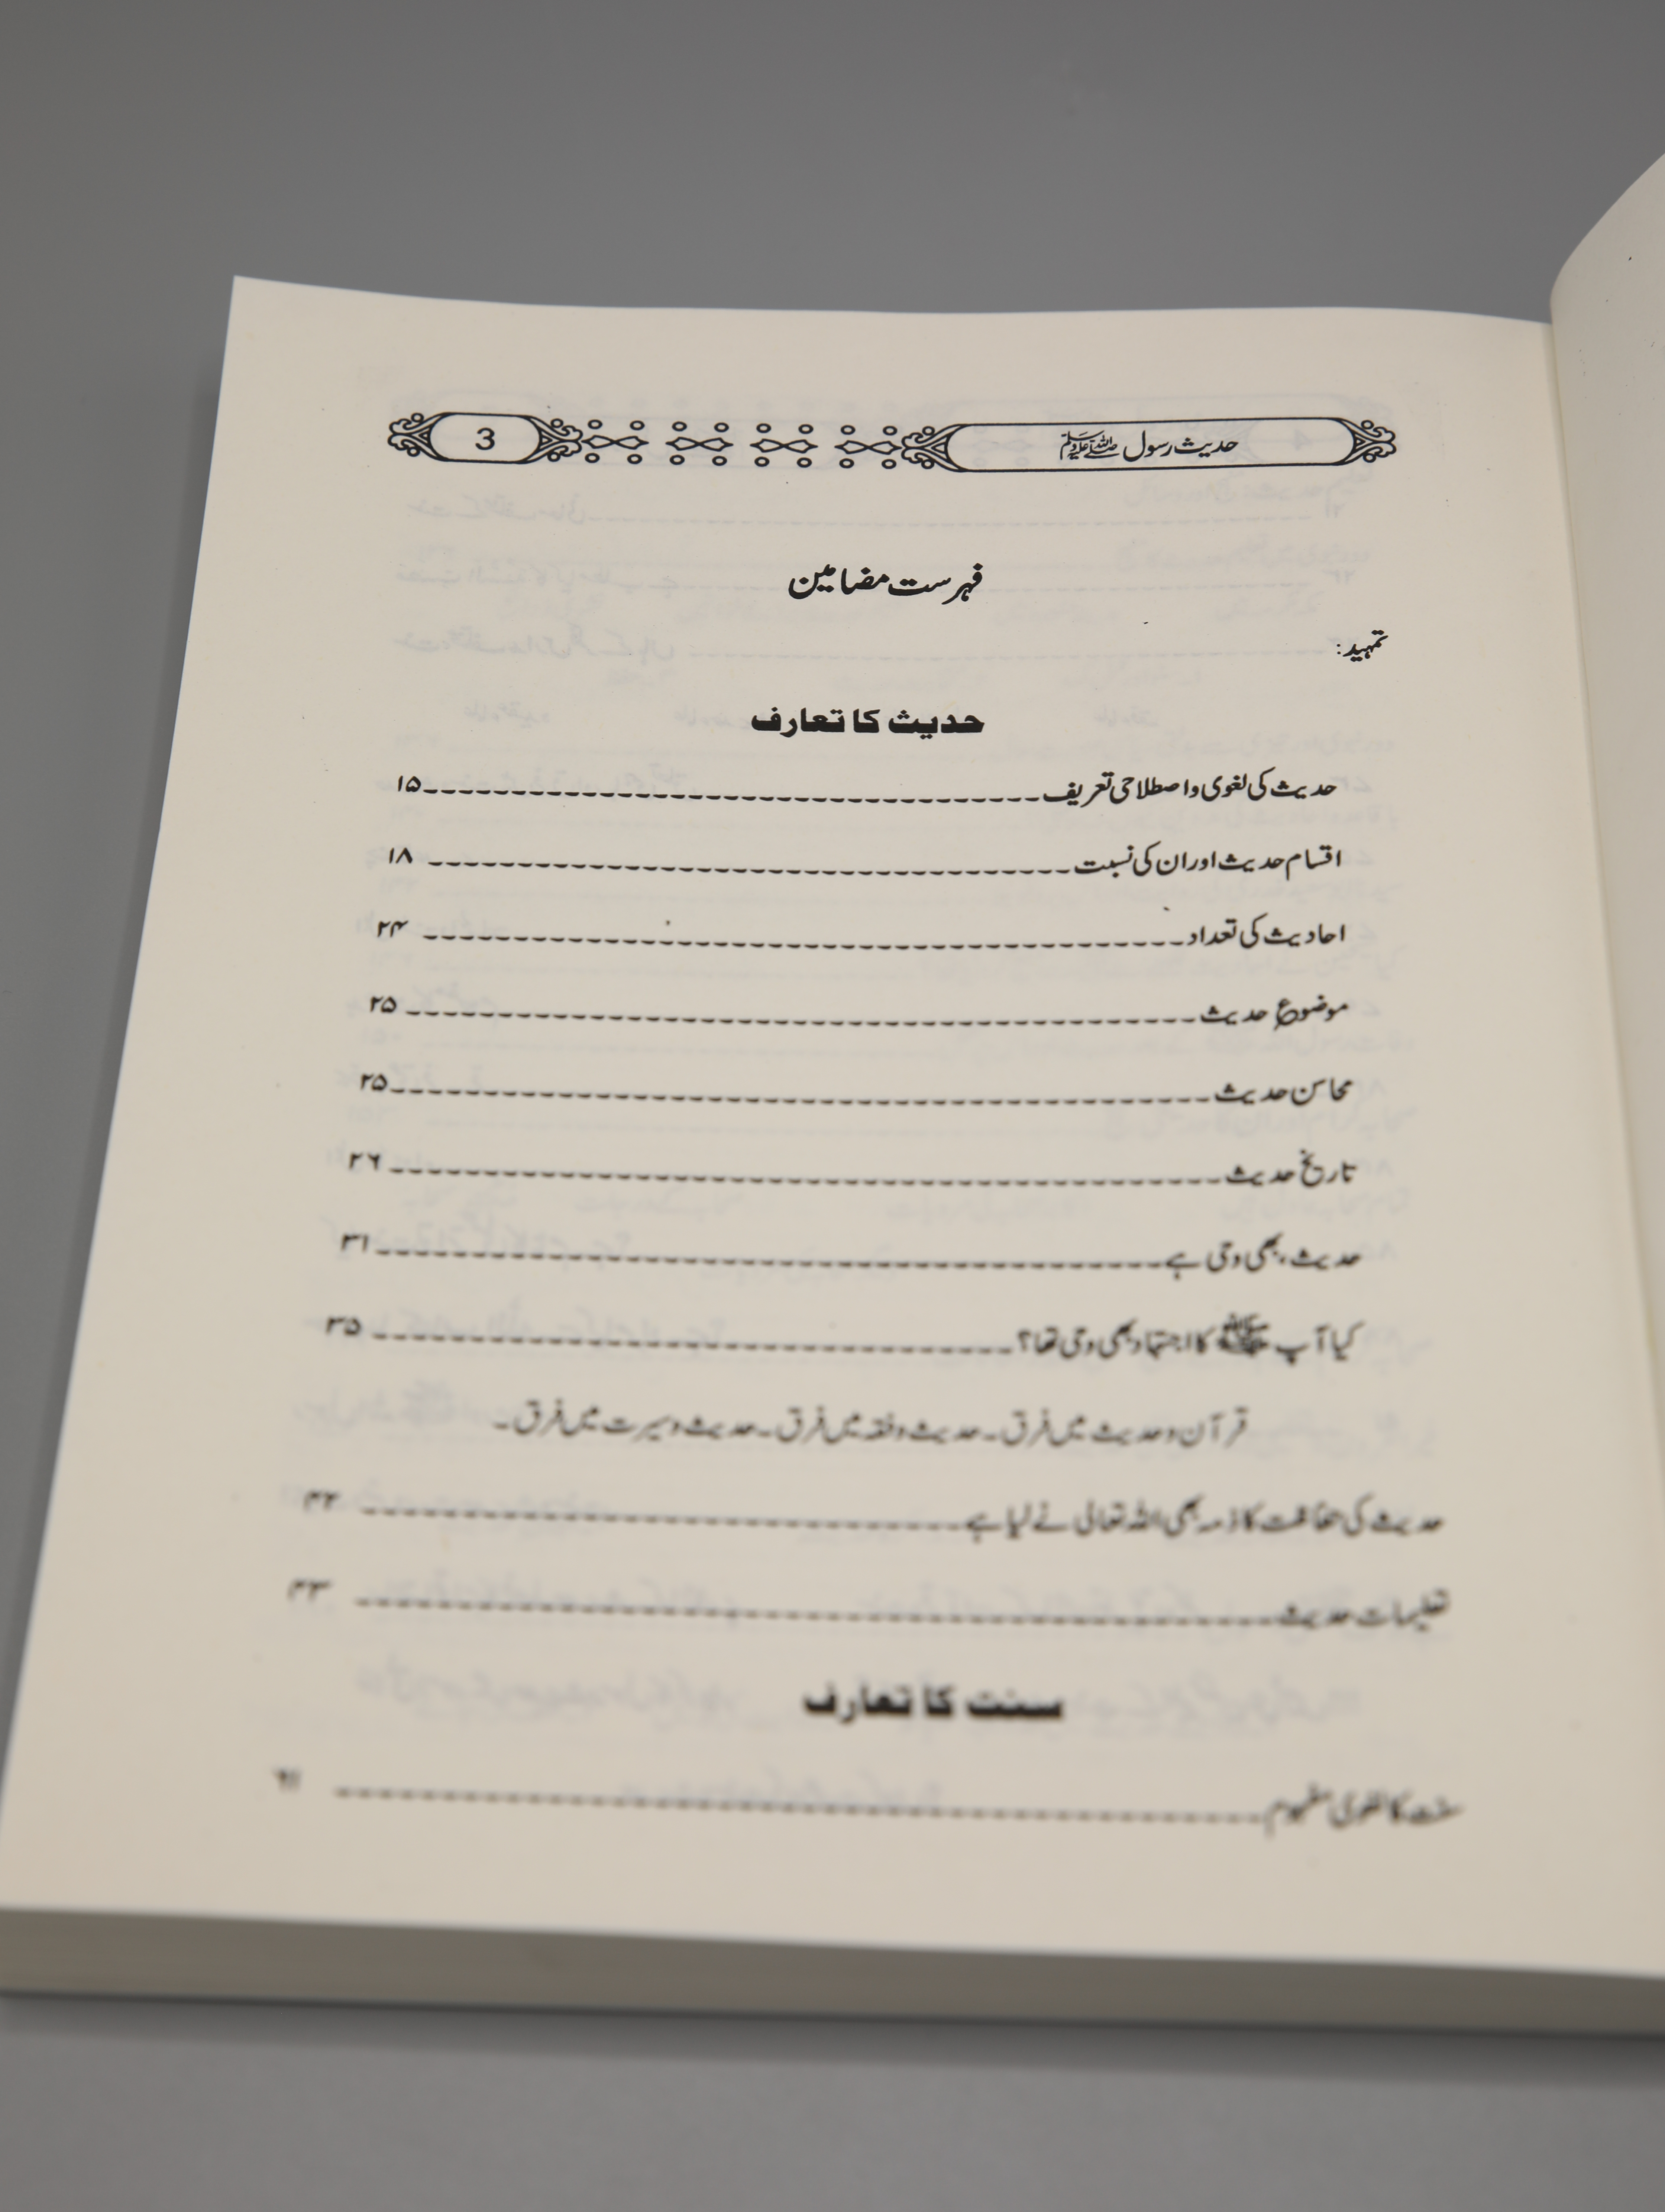 حدیث رسول ﷺ 3
فہرست مضامین
تمہید:
حدیث کا تعارف
حدیث کی لغوی واصطلاحی تعریف ۱۵
اقسام حدیث اوران کی نسبت ۱۸
احادیث کی تعداد ۲۴
موضوع حدیث ۲۵
محاسن حدیث ۲۵
تاریخ حدیث ۲۶
حدیث، بھی وحی ہے ۳۱
کیا آپ ﷺ کا اجتہاد بھی وحی تھا؟ ۳۵
قرآن وحدیث میں فرق۔حدیث وفقہ میں فرق۔حدیث وسیرت میں فرق۔
حدیث کی حفاظت کا ذمہ بھی اللہ تعالی نے لیا ہے ۴۲
تعلیمات حدیث ۴۳
سنت کا تعارف
سنت کا لغوی مفہوم